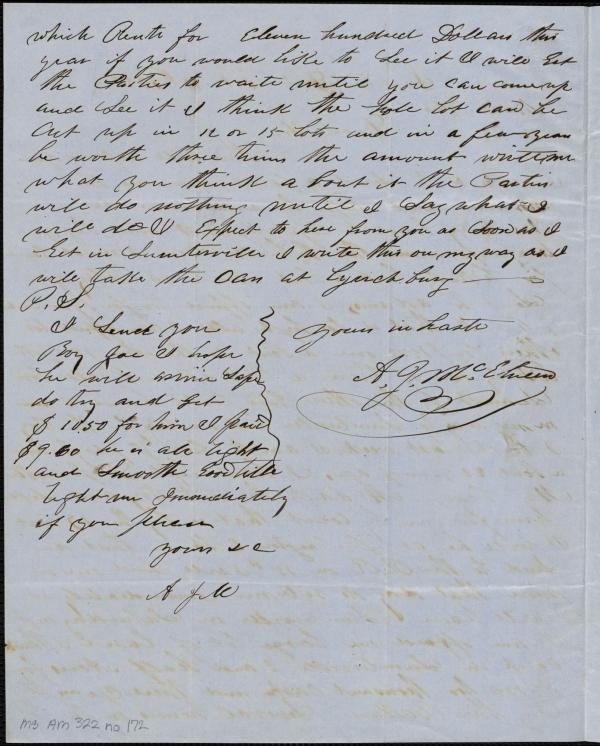 which Rents for Eleven hundred Dollars this
year if you would like to See it I will Get
the Parties to waite until you can come up
and See it I think the hole Lot can be
Cut up in 12 or 15 Lots and in a few years
be worth three times the amount write me
what you think a bout it the Parties
will do nothing until I Say what I
will do & I Expect to hear from you as Soon as I
Get in Sumterville I write this on my way as I
will take the Cars at Lynchburg
P.S.
I Send you
Boy Joe I hope
he will arrive Safe
do try and Get
$1050 for him I paid
$9.60 he is all right
and Smooth Good title
Right me Immediately
if you please
yours &c
A J M
yours in haste
A. J. McElveen
MS AM 322 no 172